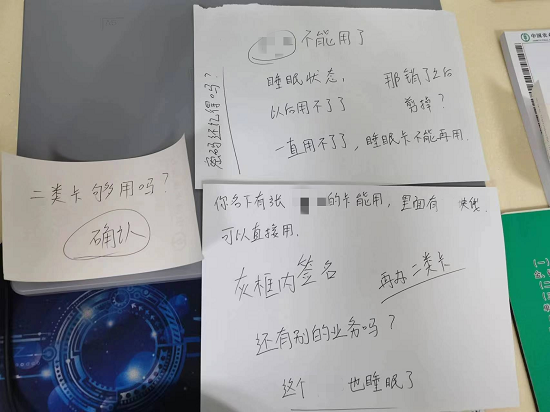 不能用了
睡眠状态,
那销了之后
以后用不了了
剪掉?
一直用不了了,睡眠卡不能再用.
密码还记得吗?
二类卡够用吗?
确认
你名下有张 的卡能用,里面有 块钱.
可以直接用.
灰框内签名
再办二类卡
还有别的业务吗?
这个 也睡眠了
中国农
(一)
(二)